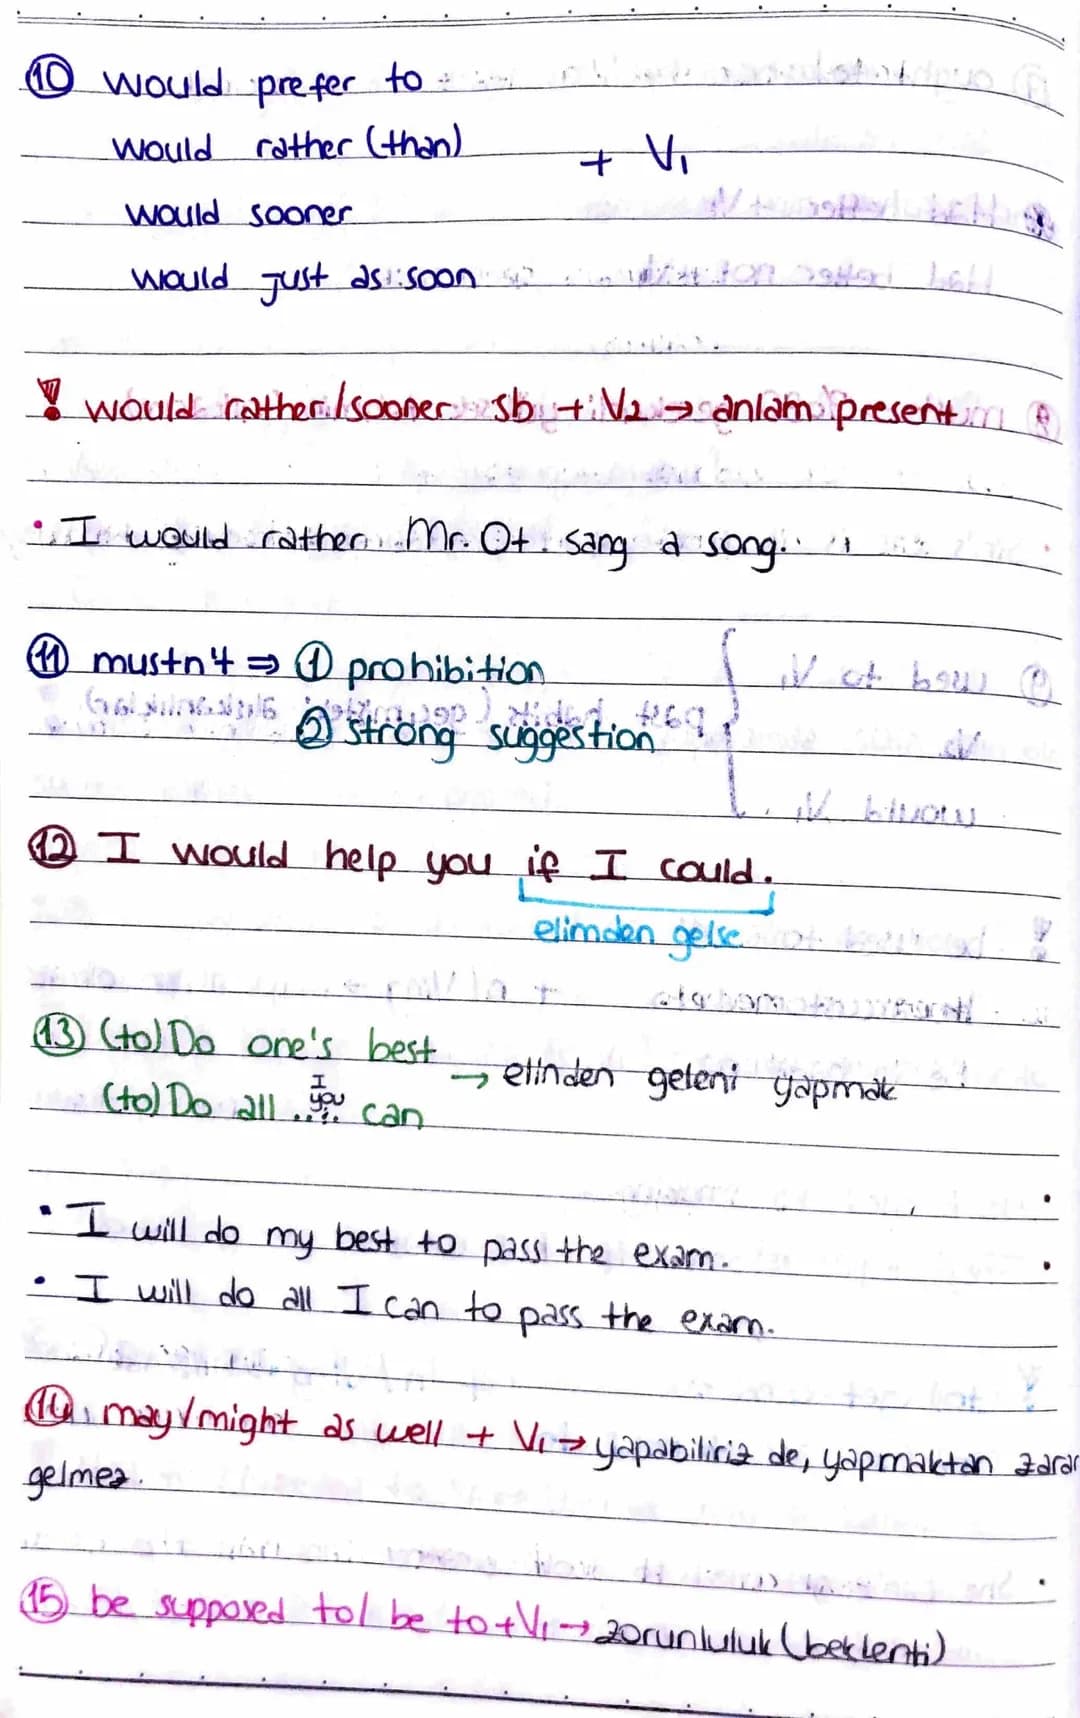 10 would prefer to
would rather (than) + V1
would sooner
would just as soon
! would rather/sooner sb + V2 → anlam present
• I would rather Mr. Ot. sang a song.
11 mustn't ⇒ 1 prohibition
2 strong suggestion
12 I would help you if I could.
elimden gelse
13 (to) Do one's best → elinden geleni yapmak
I
(to) Do all ..you.. can
• I will do my best to pass the exam.
• I will do all I can to pass the exam.
14 may/might as well + V1 → yapabiliriz de, yapmaktan zarar
gelmez.
15 be supposed to/ be to + V1 → zorunluluk (beklenti)